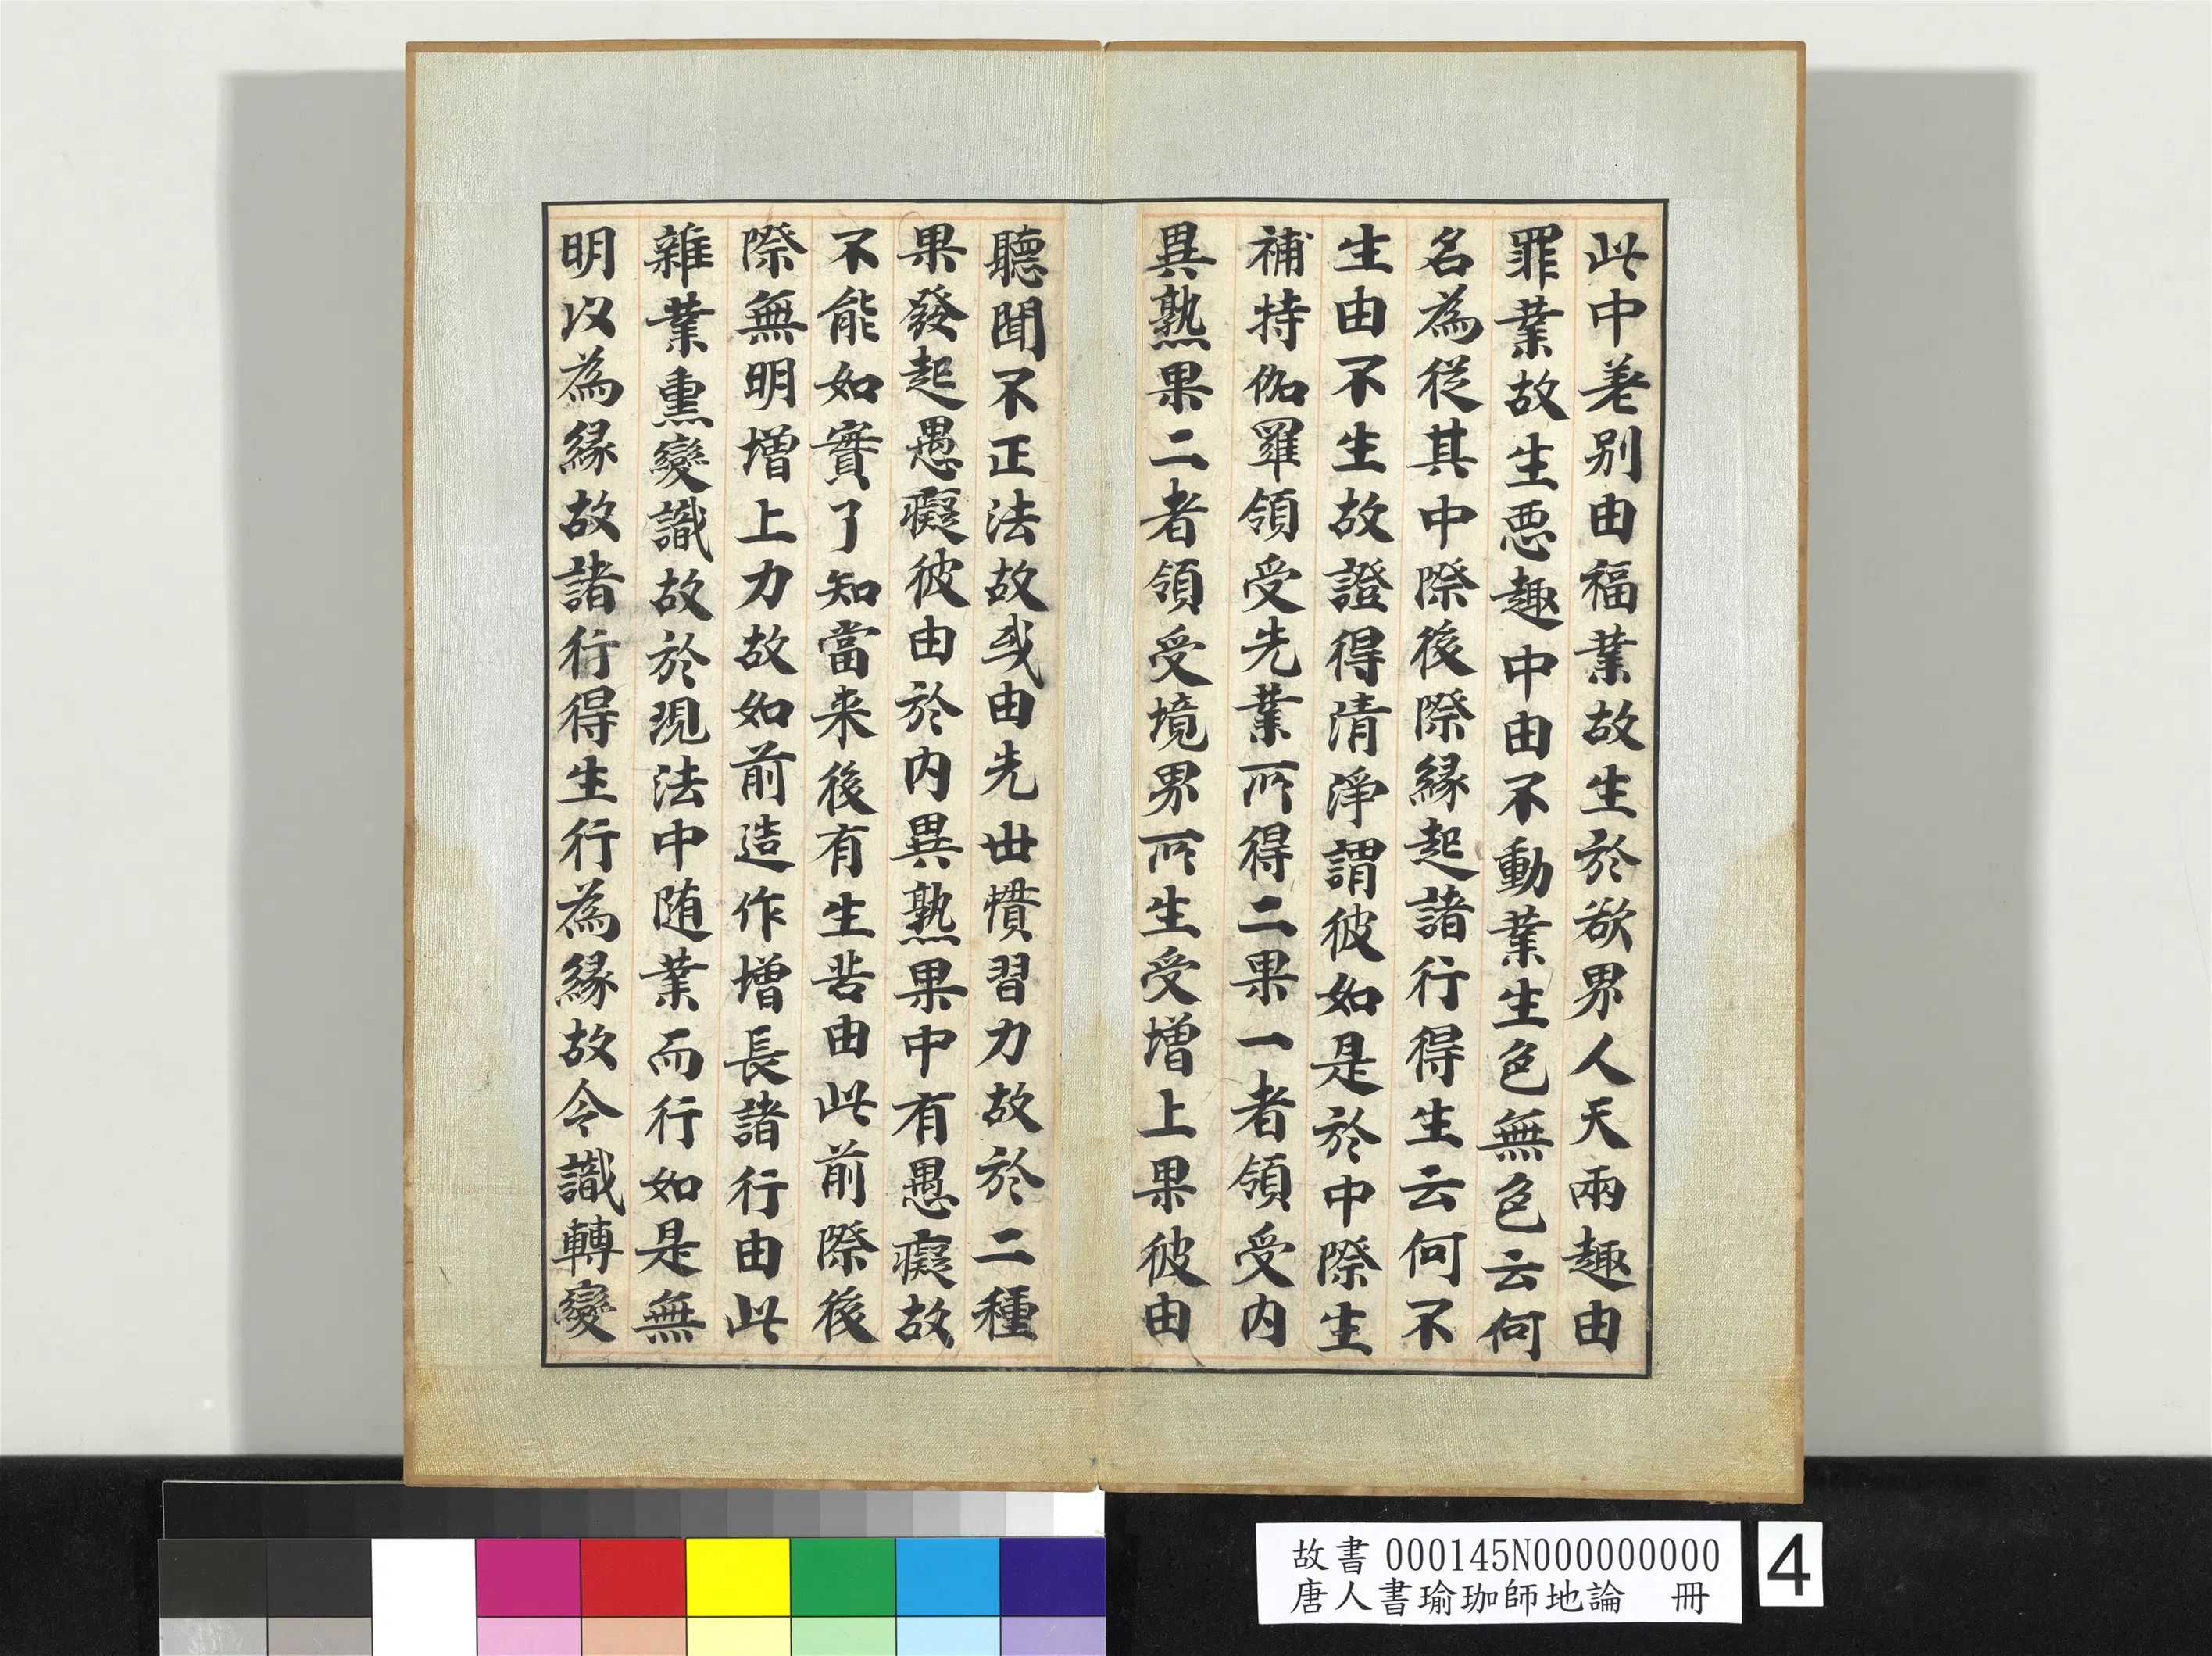 此中差別由福業故生於欲界人天兩趣由
罪業故生惡趣中由不動業生色無色云何
名為從其中際後際緣起諸行得生云何不
生由不生故證得清淨謂彼如是於中際生
補特伽羅領受先業所得二果一者領受內
異熟果二者領受境界所生受增上果彼由
聽聞不正法故或由先世慣習力故於二種
果發起愚癡彼由於內異熟果中有愚癡故
不能如實了知當来後有生苦由此前際後
際無明增上力故如前造作增長諸行由此
雜業熏變識故於現法中随業而行如是無
明以為緣故諸行得生行為緣故令識轉變
故書 000145N000000000
唐人書瑜珈師地論 冊
4